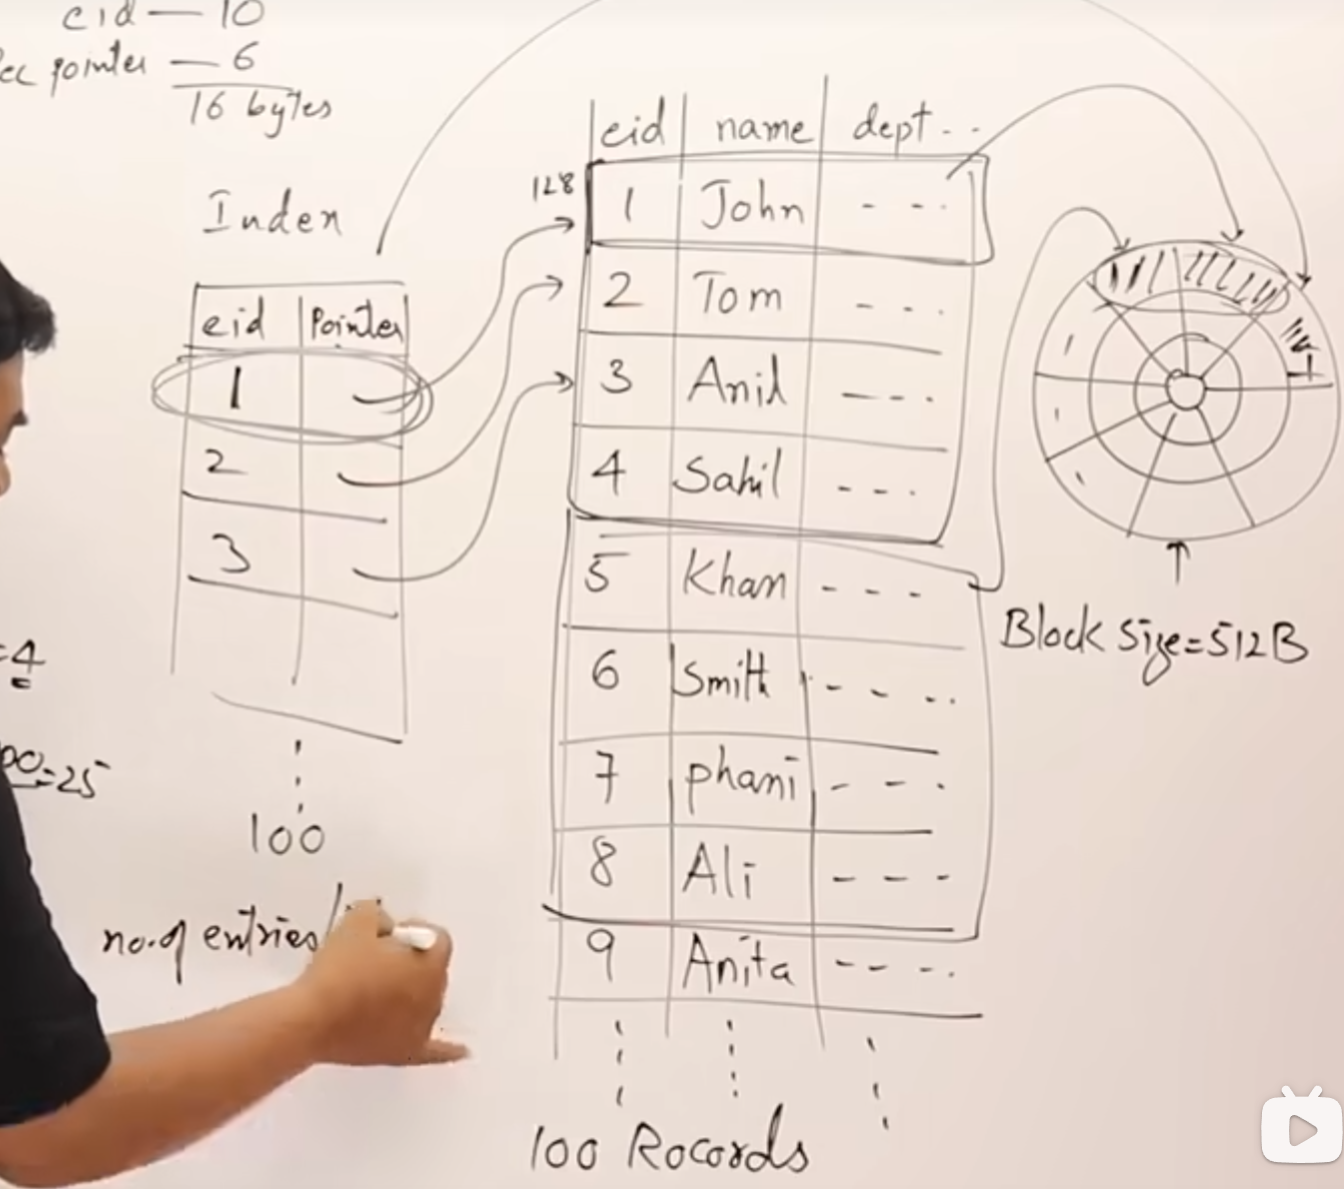 eid — 10
pointer — 6
16 bytes
Index
eid Pointer
1
2
3
100
no. of entries/
=4
=25
eid name dept - -
128
1 John - - -
2 Tom - - -
3 Anil - - -
4 Sahil - - -
5 Khan - - -
6 Smith - - - -
7 phani - - -
8 Ali - - -
9 Anita - - - -
100 Rocords
Block Size=512B